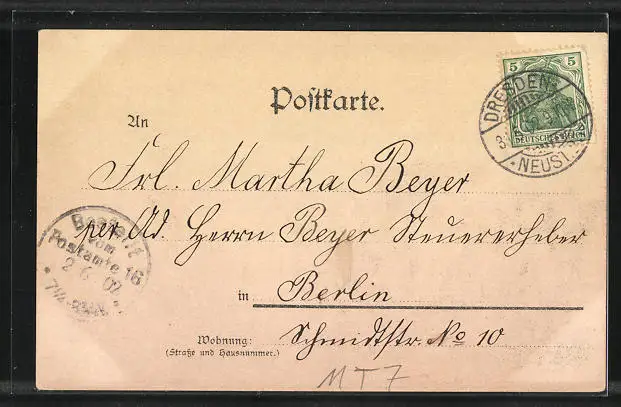 5 5
DRESDEN
DEUTSCHES REICH
NEUST.
Postkarte.
An
Frl. Martha Beyer
per Ad. Herrn Beyer Steuererheber
in Berlin
Wohnung: Schmidtstr. No 10
(Straße und Hausnummer.)
Bestellt
vom
Postamte 16
3 6 02
MT7